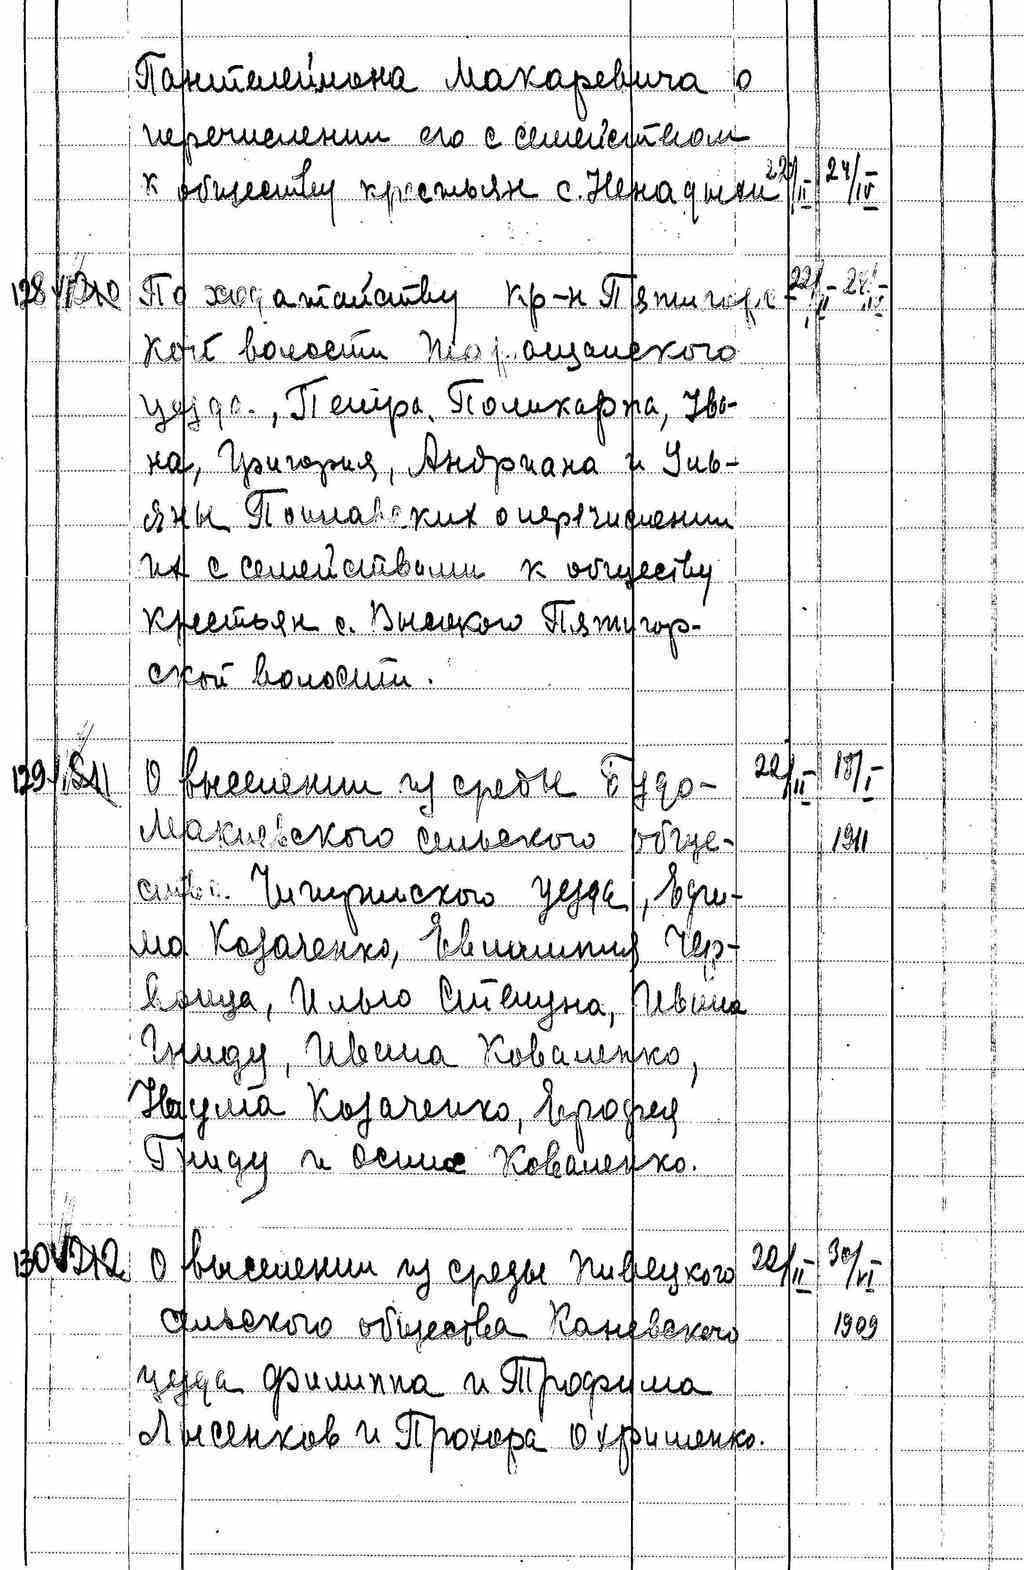 Пантелеймона Макаревича о
перечислении его с семейством
к обществу крестьян с. Ненадыхи 22/II 24/IV
128 По ходатайству кр-н Пятигорс- 22/II - 24/IV
кой волости Таращанского
уезда, Петра, Поликарпа, Ива-
на, Григория, Андриана и Уль-
яны о перечислении
их с семействами к обществу
крестьян с. Высокого Пятигор-
ской волости.
129 О выселении из среды Будо- 22/II - 18/I
Макиевского сельского обще- 1911
ства Чигиринского уезда, Ефи-
ма Козаченко, Евстафия Чер-
вонца, Илью Стецуна, Ивана
Гниду, Ивана Коваленко,
Наума Козаченко, Ерофея
Гниду и Осипа Коваленко.
130 О выселении из среды Пивецкого 22/II 30/VI
сельского общества Каневского 1909
уезда Филиппа и Трофима
Лысенков и Прохора Охрименко.